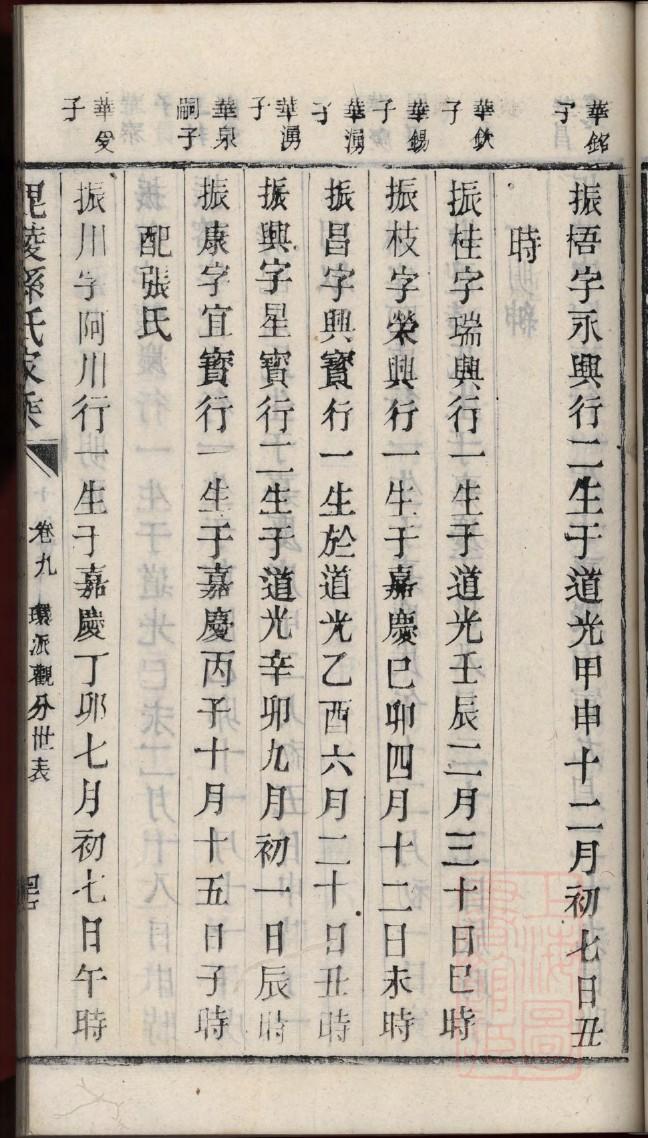 華銘子
振梧字永興行二生于道光甲申十二月初七日丑
時
華欽子
振桂字瑞興行一生于道光壬辰二月三十日巳時
華錫子
振枝字榮興行一生于嘉慶己卯四月十二日未時
華湧子
振昌字興寳行一生於道光乙酉六月二十日丑時
華湧子
振興字星寳行二生于道光辛卯九月初一日辰時
華泉嗣子
振康字宜寳行一生于嘉慶丙子十月十五日子時
配張氏
華受子
振川字阿川行一生于嘉慶丁卯七月初七日午時
毘陵孫氏家乘
卷九
環派觀分世表
上海圖書館藏